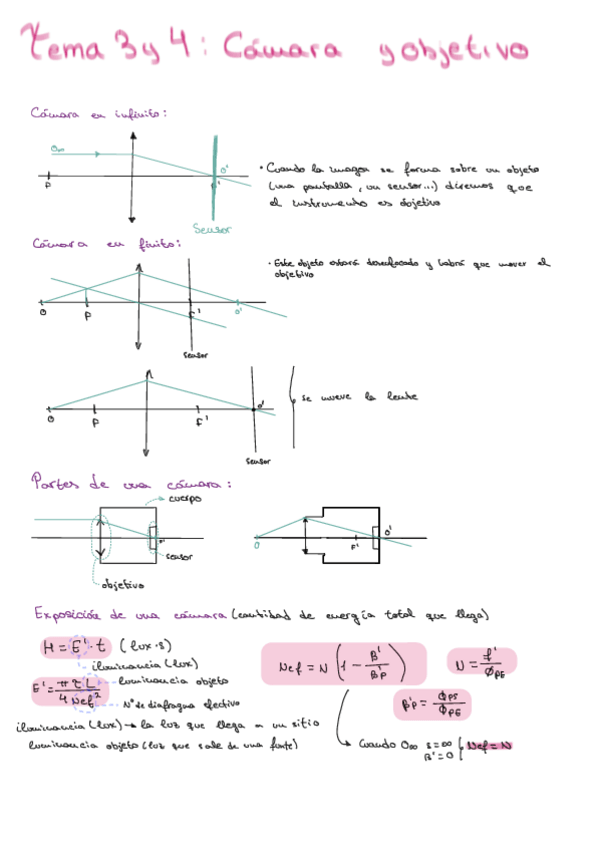 Tema 3 y 4: Cámara y objetivo
Cámara en infinito:
O∞
F
O'
F'
Sensor
· Cuando la imagen se forma sobre un objeto
(una pantalla, un sensor...) diremos que
el instrumento es objetivo
Cámara en finito:
· Este objeto estará desenfocado y habrá que mover el
objetivo
O
F
F'
O'
sensor
O
F
F'
O'
sensor
se mueve la lente
Partes de una cámara:
cuerpo
F'
sensor
objetivo
O
F'
O'
Exposición de una cámara (cantidad de energía total que llega)
H = E' · t (lux·s)
iluminancia (lux)
E' = π τ L / 4 Nef²
luminancia objeto
Nº de diafragma efectivo
Nef = N (1 - β' / β'p)
N = f' / ϕPE
β'p = ϕPS / ϕPE
iluminancia (lux) → la luz que llega a un sitio
luminancia objeto (luz que sale de una fuente)
Cuando O∞ s=∞ β'=0 } Nef = N